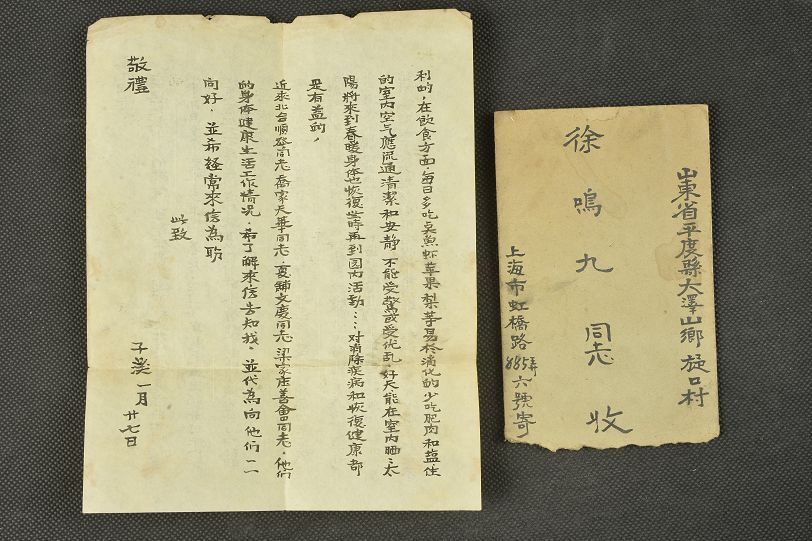 利的，在飲食方面每日多吃点魚虾苹果梨等易於消化的少吃肥肉和盐性
的室内空气應流通清潔和安静不能受驚或受扰乱，好天能在室内晒：太
陽將來到春暖身体也恢復些時再到園内活動……对消除疾病和恢復健康都
是有益的，
近來北台順發同志喬家天華同志，夏舖文慶同志梁家庄善會同志，他們
的身体健康生活工作情况，希了解來信告知我，並代為向他們一一
问好，並希経常來信為盼
此致
敬禮
子 一月廿七日
山東省平度縣大澤山鄉旋口村
徐鳴九同志收
上海市虹橋路885弄六號寄